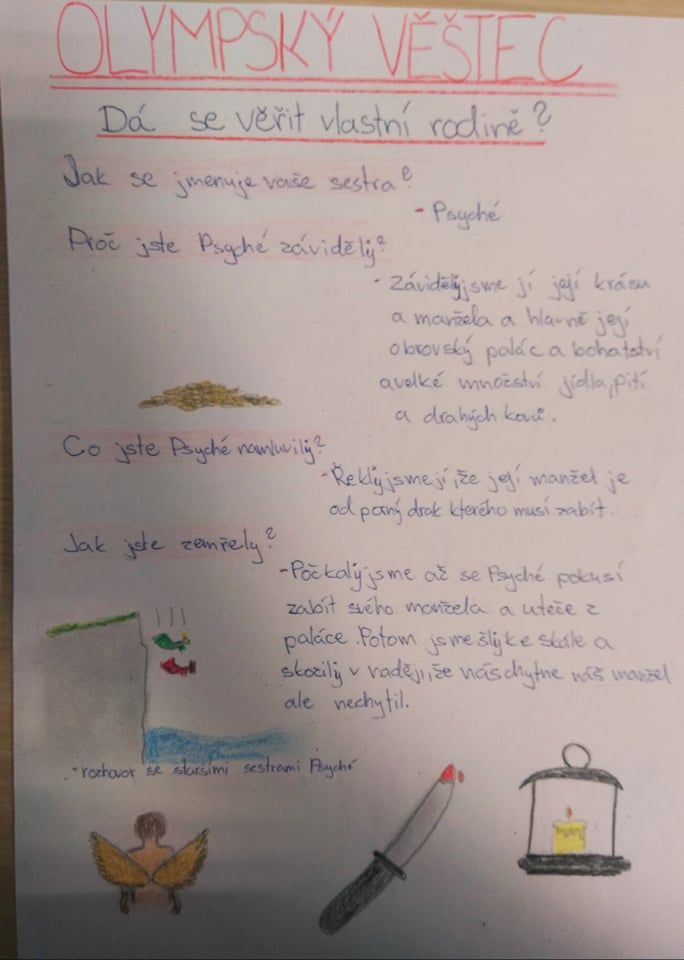 OLYMPSKÝ VĚŠTEC
Dá se věřit vlastní rodině?
Jak se jmenuje vaše sestra?
- Psyché
Proč jste Psyché záviděly?
- Záviděly jsme jí její krásu
a manžela a hlavně její
obrovský palác a bohatství
a velké množství jídla, pití
a drahých kovů.
Co jste Psyché namluvily?
- Řekly jsme jí, že její manžel je
odporný drak kterého musí zabít.
Jak jste zemřely?
- Počkaly jsme až se Psyché pokusí
zabít svého manžela a uteče z
paláce. Potom jsme šly ke skále a
skočily v naději, že nás chytne náš manžel
ale nechytil.
- rozhovor se staršími sestrami Psyché